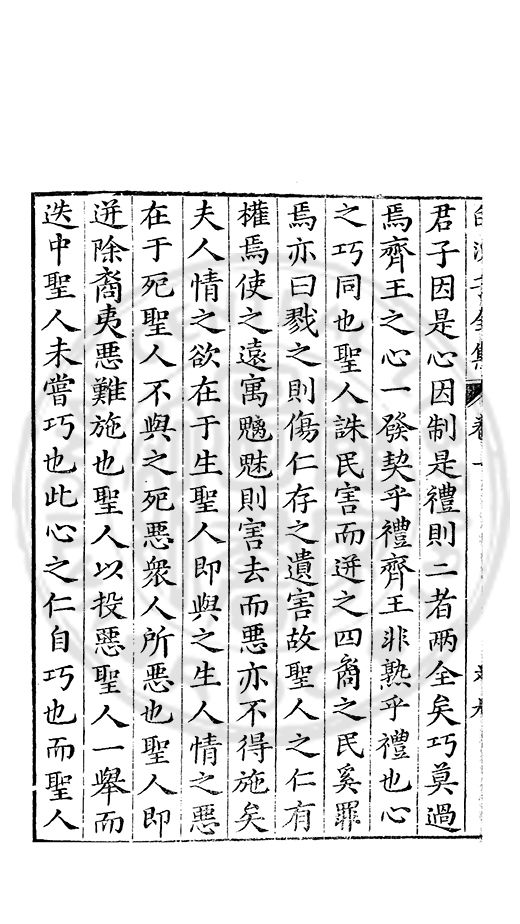 君子因是心因制是禮則二者兩全矣巧莫過
焉齊王之心一發契乎禮齊王非熟乎禮也心
之巧同也聖人誅民害而迸之四裔之民奚罪
焉亦曰戮之則傷仁存之遺害故聖人之仁有
權焉使之遠寓魑魅則害去而惡亦不得施矣
夫人情之欲在于生聖人即與之生人情之惡
在于死聖人不與之死惡衆人所惡也聖人即
迸除裔夷惡難施也聖人以投惡聖人一舉而
迭中聖人未嘗巧也此心之仁自巧也而聖人